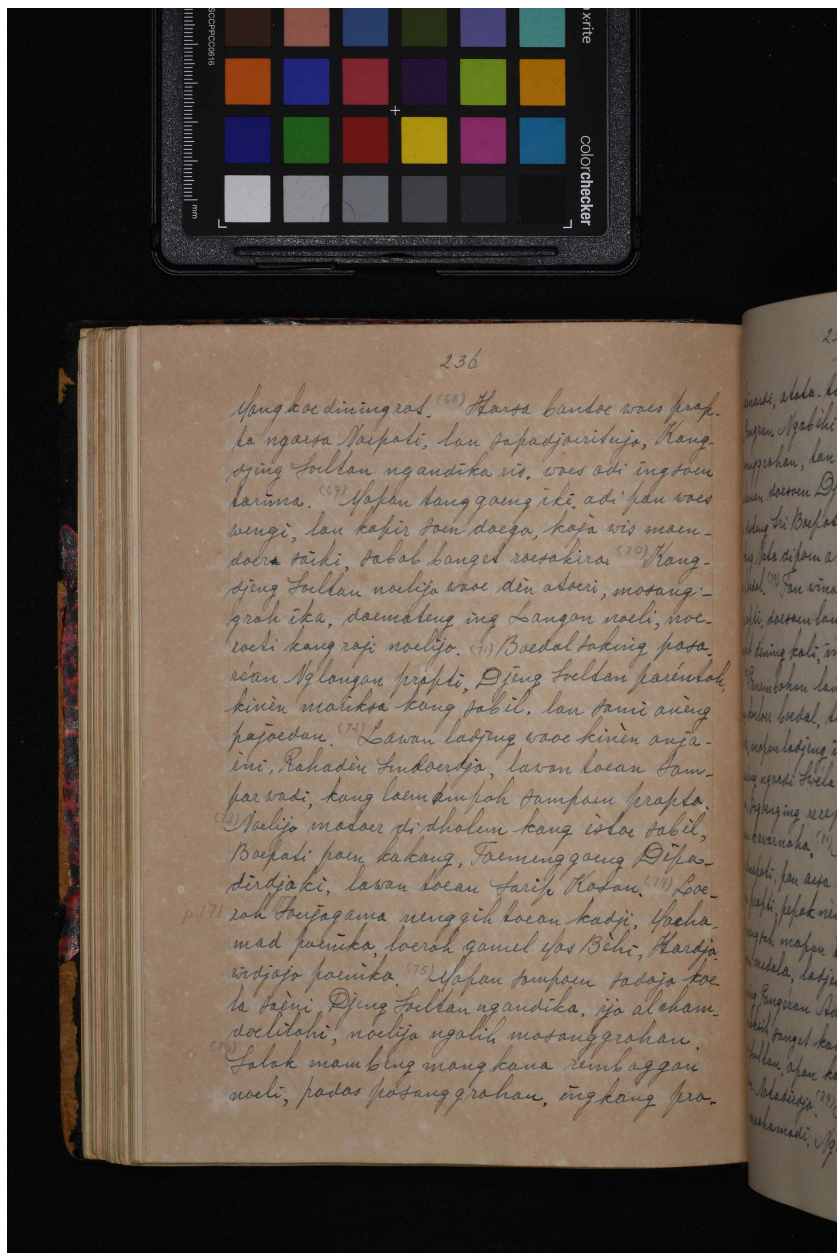 SCCPPCC0616
x-rite
colorchecker
mm
236
Mangkoediningrat. (68) Harsa bantoe woes prap-
ta ngarsa Naepati, lan sapadjoeritnja, Kang-
djeng Soeltan ngandika ris, woes adi ingsoen
tarima. (69) Mapan tanggoeng iki, adi pan woes
wengi, lan kapir soen doega, kaja wis moen-
doera saiki, sabab banget roesakira. (70) Kang-
djeng Soeltan noelija waoe dèn atoeri, masang-
grah ika, doemateng ing Langon noeli, noe-
roeti kang raji noelijo. (71) Boedal saking pasa-
réan Nglangon prapti, Djeng Soeltan paréntah,
kinèn mariksa kang sabil, lan sami anèng
pajoedan. (72) Lawan ladjeng waoe kinèn anja-
èni, Rahadèn Sindoerdja, lawan toean Sam-
parwadi, kang loemempah sampoen prapta.
(73) Noelijo matoer di dhalem kang èstoe sabil,
Boepati poen kakang, Toemenggoeng Dipa-
dirdja ki, lawan toean Sarip Kasan. (74) Loe-
p.171 rah Soerjagama nenggih toean kadji, Mocha-
mad poenika, loerah gamel Mas Béhi, Hardja
widjaja poenika. (75) Mapan sampoen sadaja koe-
la saèni Djeng Soeltan ngandika, ija alcham-
doelilahi, noelija ngalih masanggrahan.
(76) Salak mambeng mangkana rembaggan
noeli, padas pasanggrahan, ingkang pra-